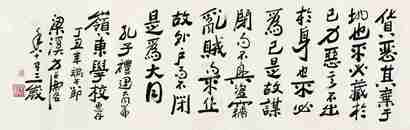 貨惡其棄于
地也不必藏於
己力惡其不出
於身也不必
為己是故謀
閉而不興盜竊
亂賊而不作
故外戶而不閉
是為大同
孔子禮運大同篇
嶺東學校惠存
丁丑年端午節
三歲